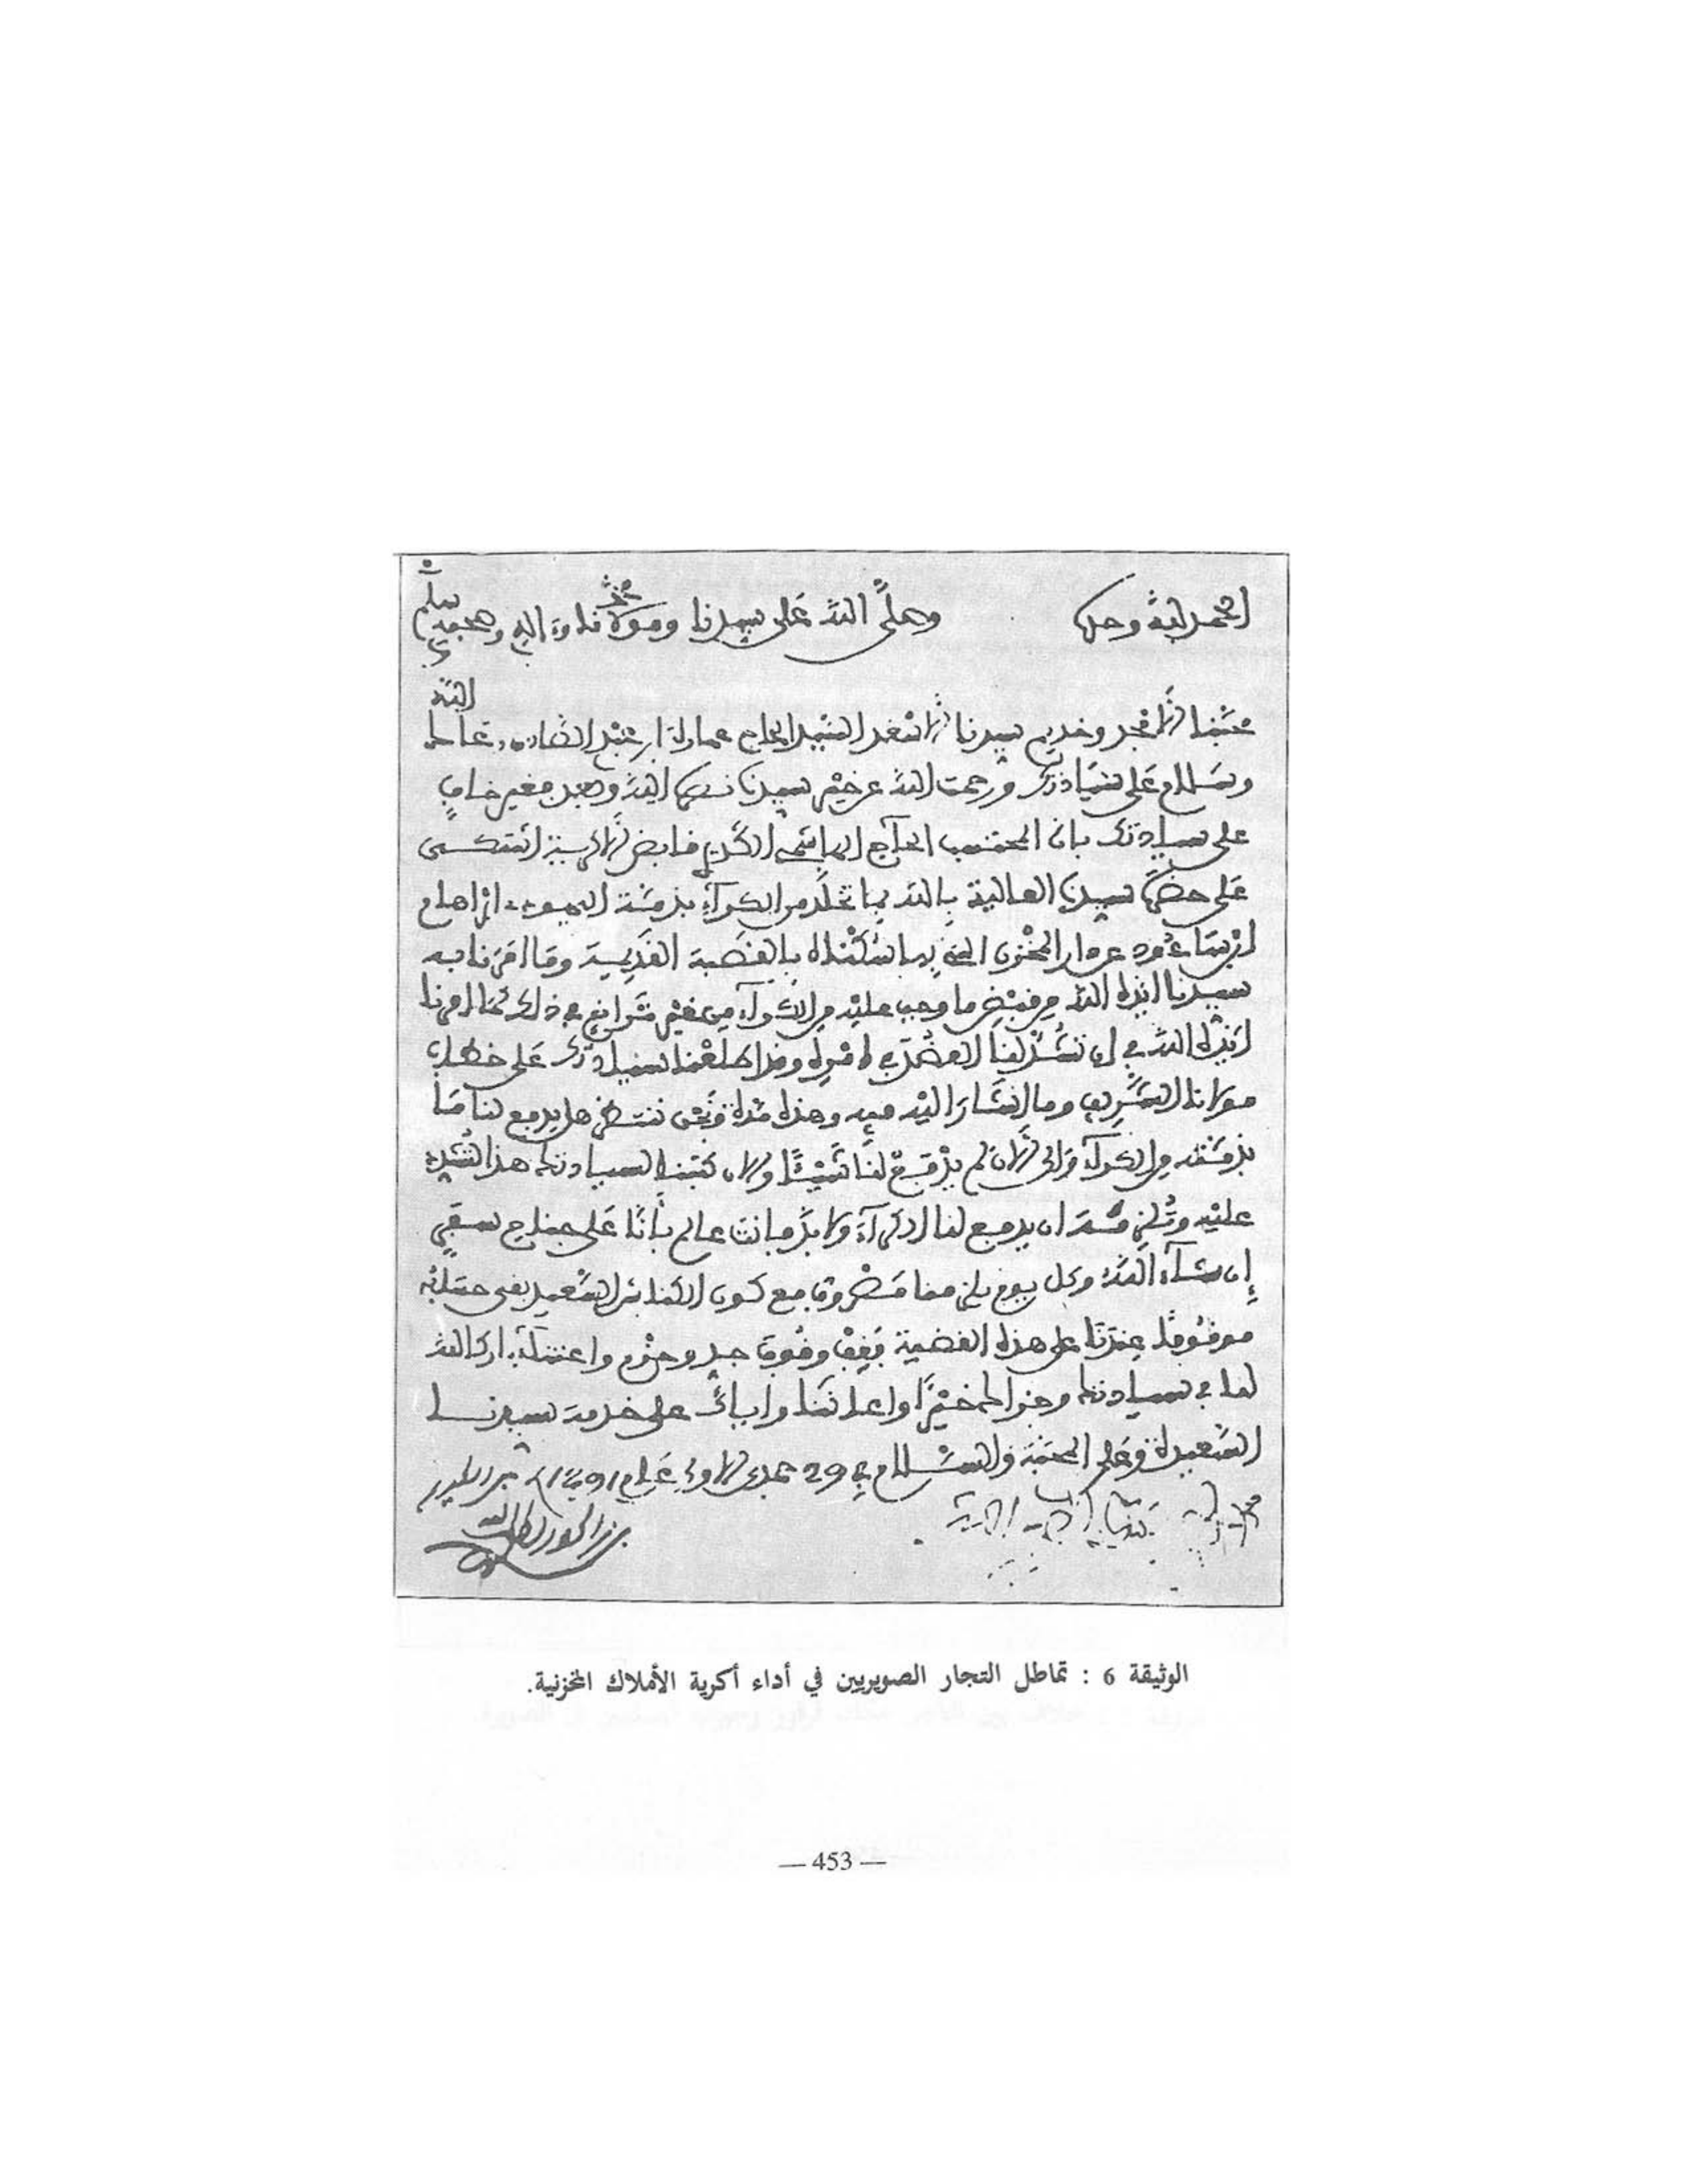 الحمد لله وحده وصلى الله على سيدنا ومولانا محمد وءاله وصحبه وسلم
محبنا الأمجد وخديم سيدنا الأسعد السيد الحاج عمارة ابن عبد الصادق رعاك الله
وسلام على سيادتك ورحمت الله عن خير سيدنا نصره الله وبعد فغير خاف
على سيادتك بان المحتسب الحاج الهاشمي الذي قابض الاكرية اشتكى
على حضرة سيدنا العالية بالله بما تخلد من الكراء بذمة اليهودي ابراهام
عن دار المخزن التي بها سكناه بالقصبة القديمة وما امرنا به
سيدنا ايده الله من قبض ما وجب عليه من الكراء من غير تراخ في ذلك كما امرنا
ايده الله في ان نشد لفا العضد في امره وقد اطلعنا سيادتك على خطاب
مولانا الشريف وما اشار اليه فيه وهذه مدة ونحن ننتظر هل يدفع لنا ما
بذمته من الكراء والى الآن لم يدفع لنا شيئا والان كتبنا لسيادتك هذا لتشدد
عليه وتلزمه ان يدفع لنا الكراء ولا بد فانت عالم بأنا على جناح سفر
إن شاء الله وكل يوم يلزمنا مصروف مع كون الكناش السعيد بقي حسابه
موقوفا عندنا على هذه القضية فقف وقوف جد وحزم واعتناء بارك الله
لنا في سيادتك وجزاكم خيرا واعاننا واياك على خدمة سيدنا
السعيدة وعلى المحبة والسلام في 29 جمدى الاولى عام
الوثيقة 6 : تماطل التجار الصويريين في أداء أكرية الأملاك المخزنية.
— 453 —